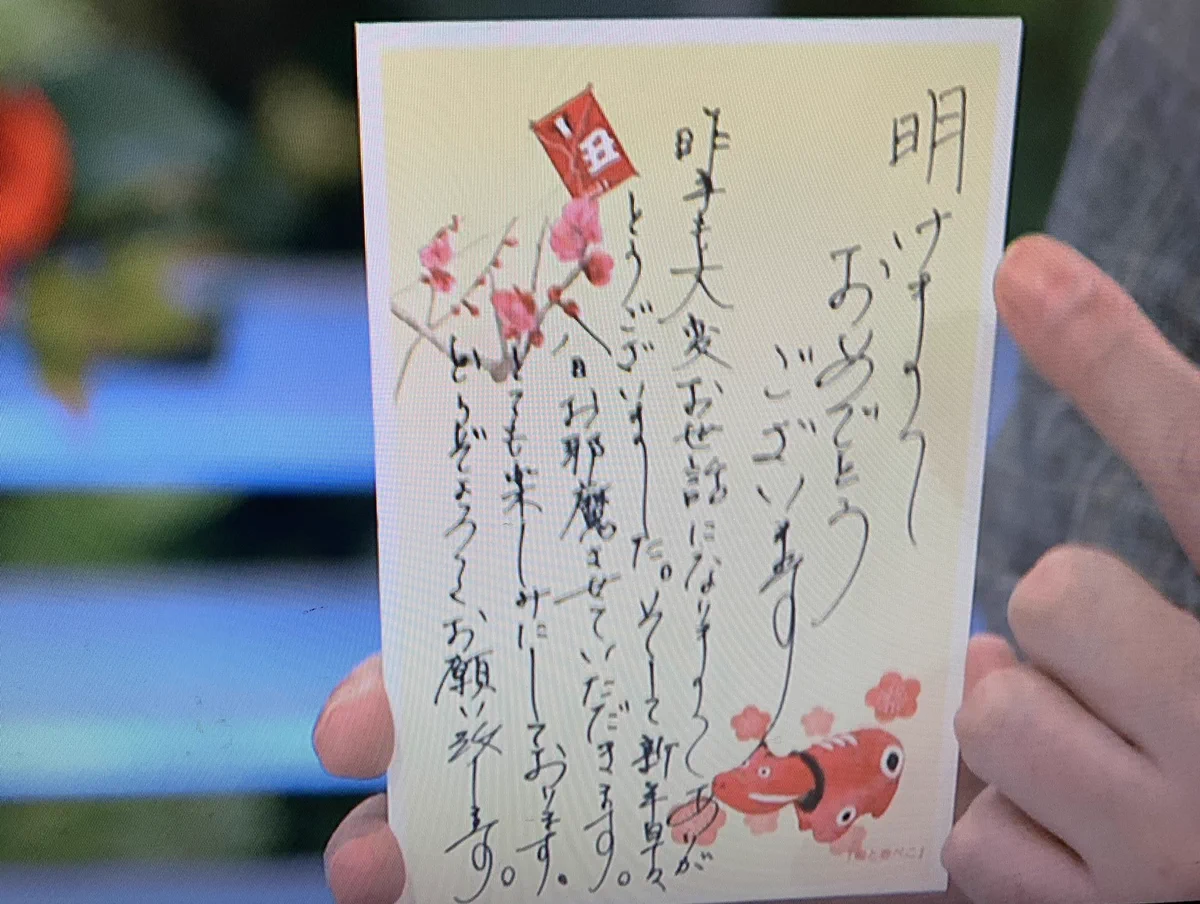 明けまして
おめでとう
ございます
昨年も大変お世話になりましてありが
とうございました。そして新年早々
八日お邪魔させていただきます。
とても楽しみにしております。
どうぞよろしくお願い致します。
丑